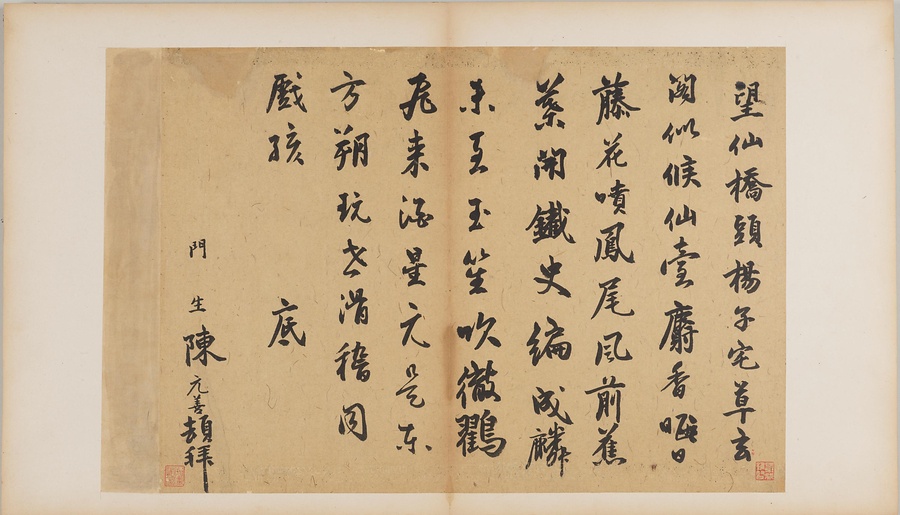 望仙橋頭楊子宅草玄
閣似候仙臺麝香暖日
藤花噴鳳尾風前蕉
葉開鐵史編成麟
未至玉笙吹徹鸛
飛来星元是東
方朔玩世滑稽同
戲孩 底
門生陳元善頓拜